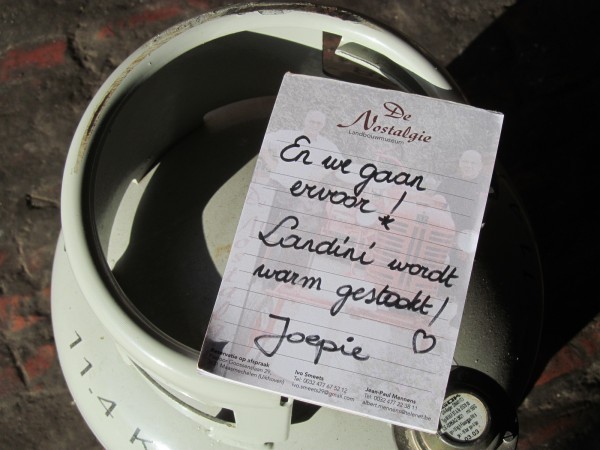 De
Nostalgie
Landbouwmuseum
En we gaan
ervoor! *
Landini wordt
warm gestookt!
Joepie ♡
op afspraak
Ivo Smeets
Tel. 0032 477 67 52 12
ivo.smeets29@gmail.com
Jean-Paul Mennens
Tel. 0032 477 32 58 11
11.4 K